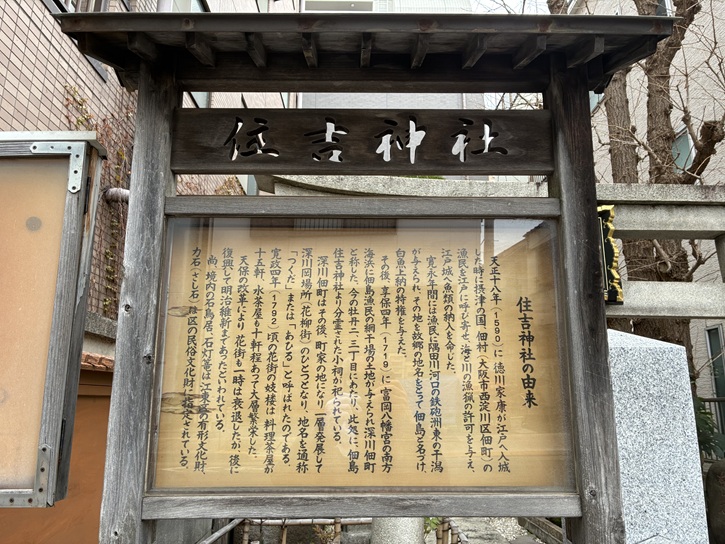 住吉神社
住吉神社の由来
天正十八年(1590)に 徳川家康が江戸へ入城
した時に摂津の国、佃村(大阪市西淀川区佃町)の
漁民を江戸に呼び寄せ、海と川の漁猟の許可を与え、
江戸城へ魚類の納入を命じた。
寛永年間には漁民に隅田川河口の鉄砲洲東の干潟
が与えられ、その地を故郷の地名をとって佃島と名づけ、
白魚上納の特権を与えた。
その後、享保四年(1719)に富岡八幡宮の南方
海浜に佃島漁民の網干場の土地が与えられ深川佃町
と称した。今の牡丹一、三丁目にわたり、此処に、佃島
住吉神社より分霊された小祠が祀られている。
深川佃町はその後、町家の地になり一層発展して
深川岡場所(花柳街)のひとつとなり、地名を通称
「つくだ」または「あひる」と呼ばれたのである。
寛政四年(1792)頃の花街の妓楼は 料理茶屋が
十五軒、水茶屋も十軒程あって大層繁栄した。
天保の改革により 花街も一時は衰退したが、後に
復興して明治維新まであったといわれている。
尚、境内の石鳥居、石灯篭は江東区の有形文化財、
力石(さし石)は区の民俗文化財に指定されている。